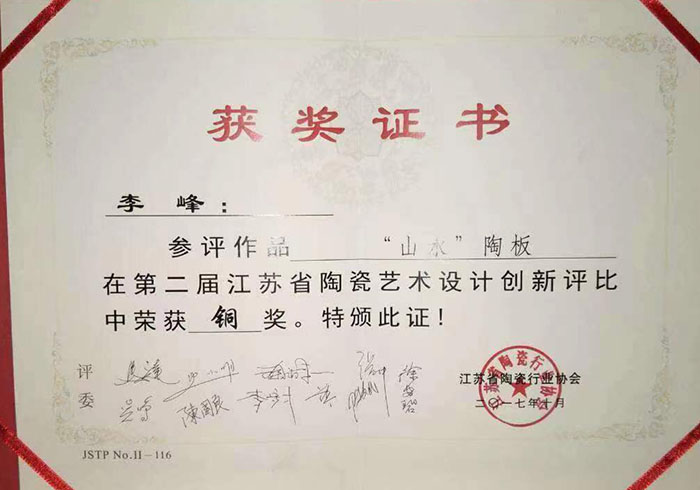 获奖证书
李峰：
参评作品 “山水”陶板
在第二届江苏省陶瓷艺术设计创新评比
中荣获 铜 奖。特颁此证！
评委
陳国良
徐
江苏省陶瓷行业协会
江苏省陶瓷行业协会
二〇一七年十月
JSTP No.II－116